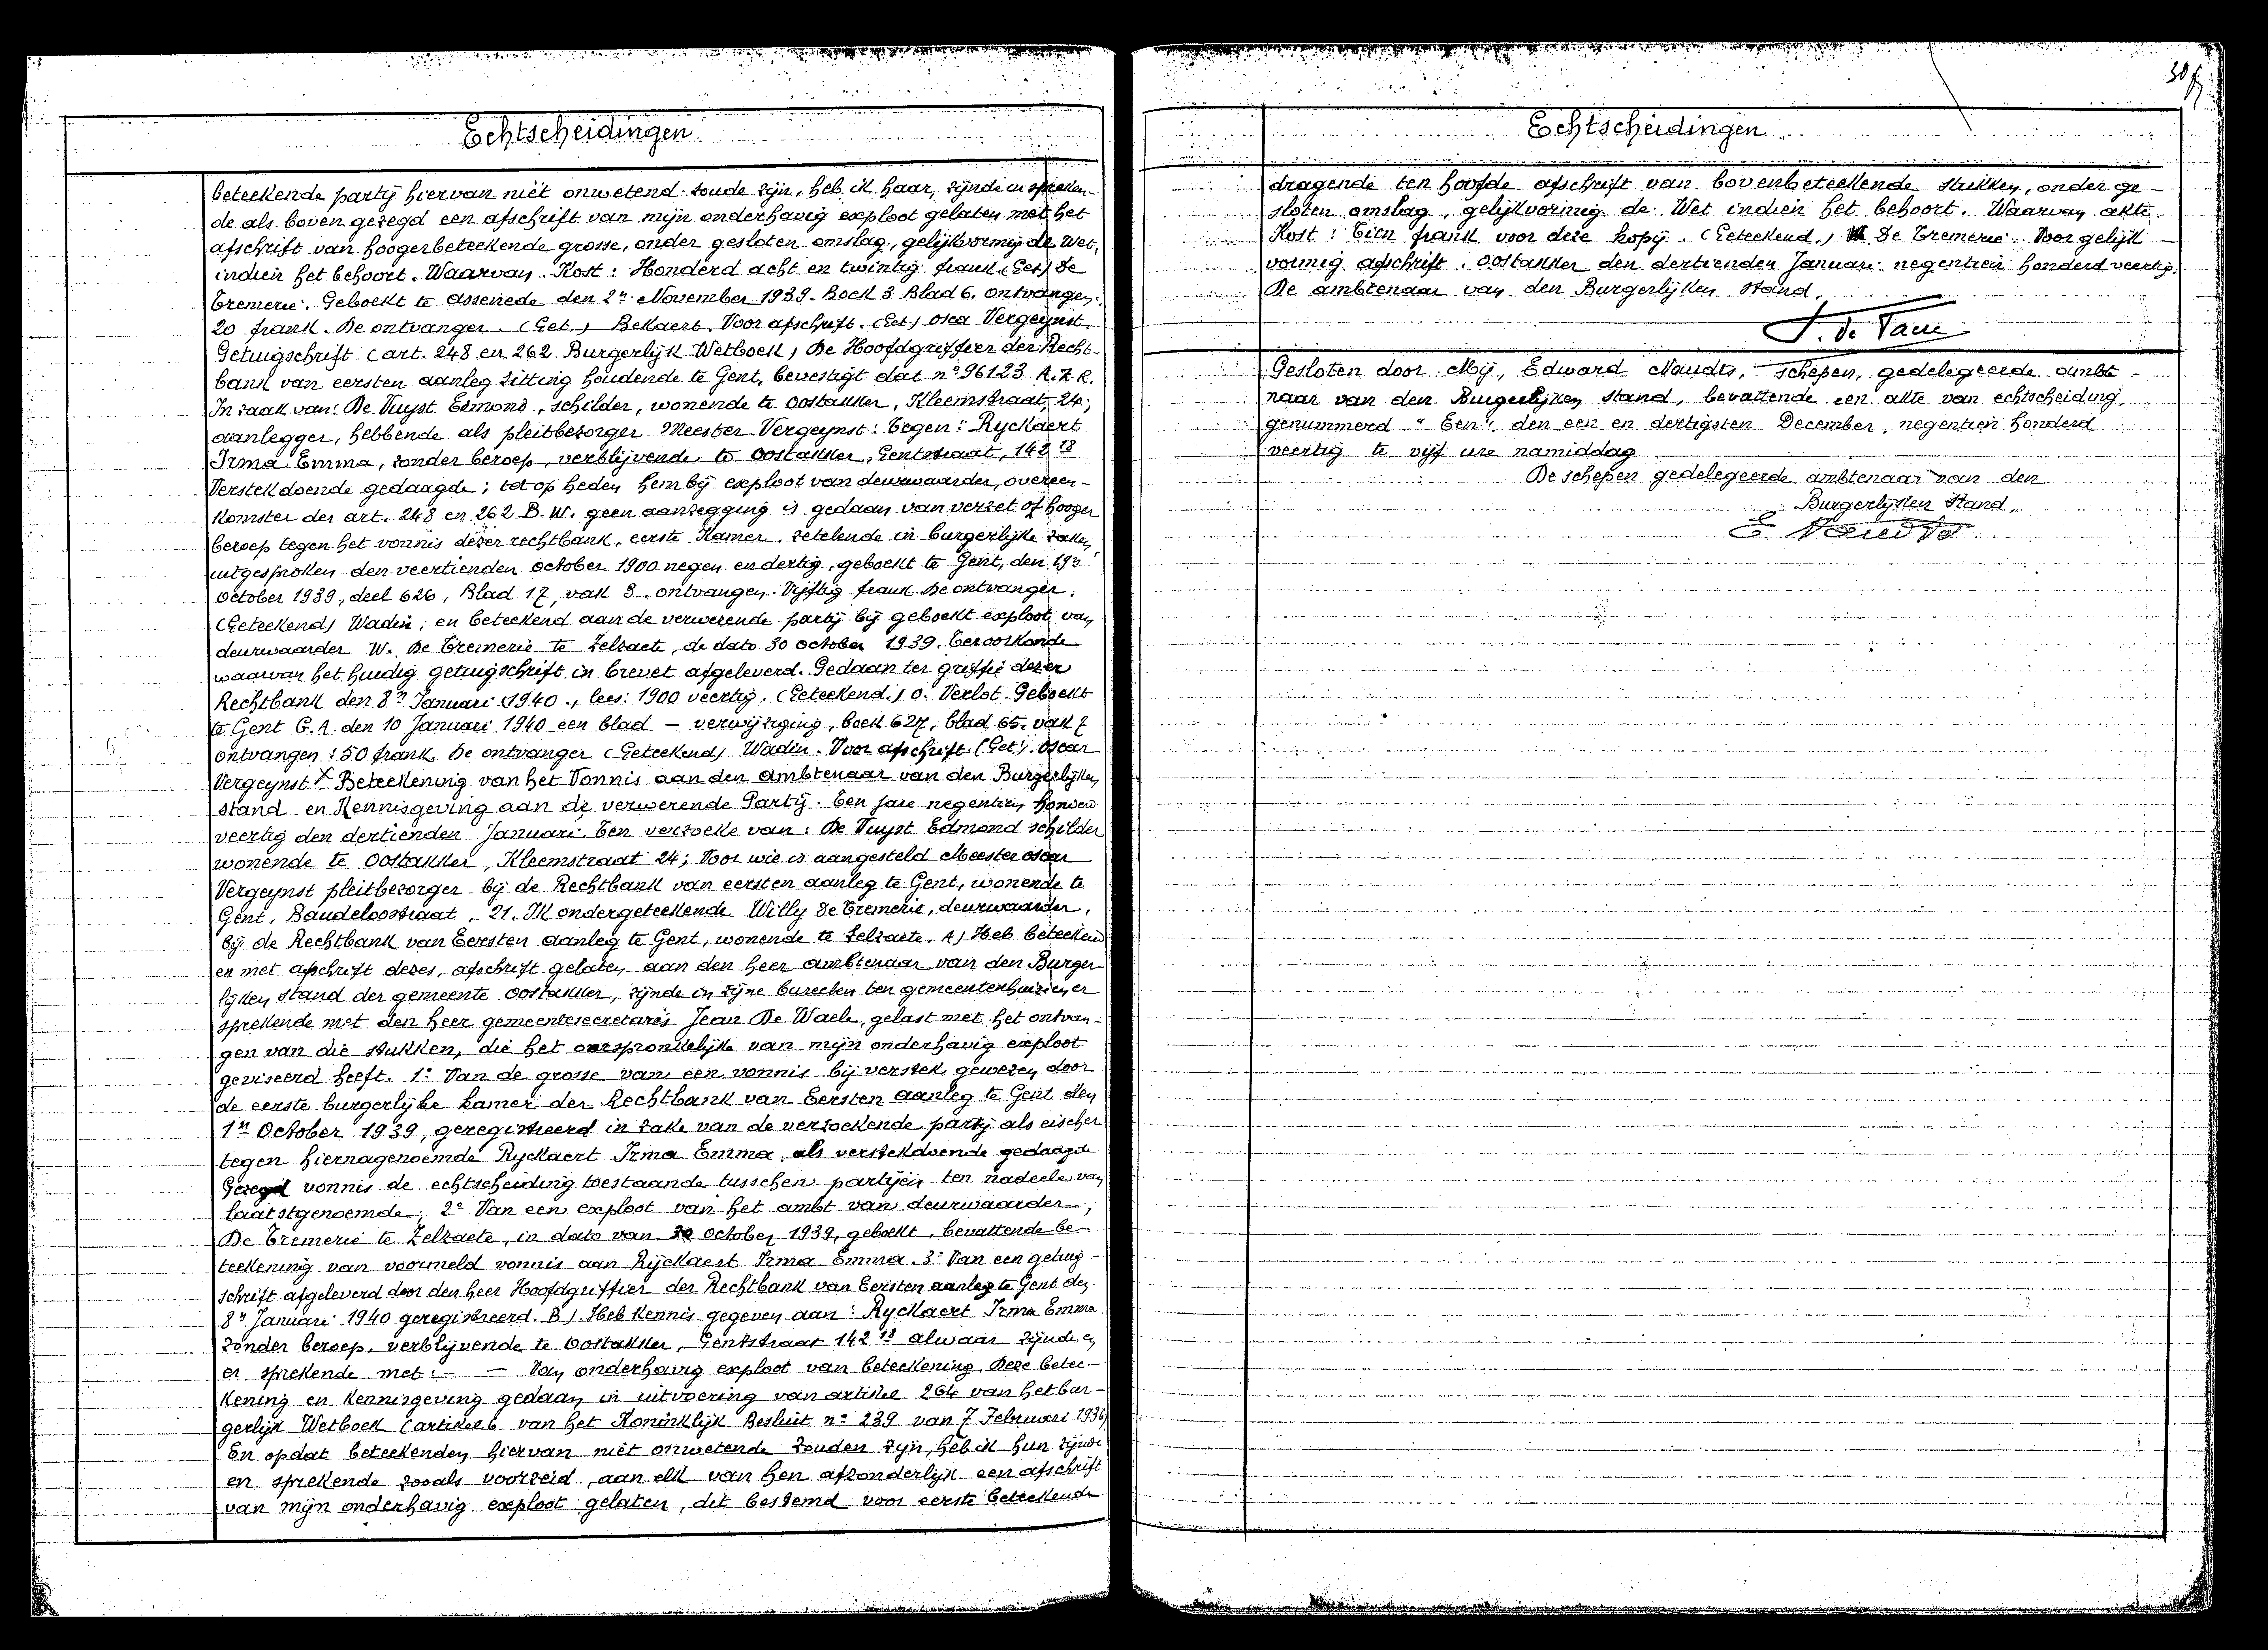 Echtscheidingen
beteekende partij hiervan niet onwetend zoude zijn, heb ik haar, zijnde en spreken-
de als boven gezegd een afschrift van mijn onderhavig exploot gelaten met het
afschrift van hoogerbeteekende grosse, onder gesloten omslag, gelijkvormig de Wet,
indien het behoort. Waarvan. Kost: Honderd acht en twintig frank (Get) De
Tremerie. Geboekt te Assenede den 2n November 1939. Boek 3 Blad 6. ontvangen:
20 frank. De ontvanger. (Get.) Bekaert. Voor afschrift. (Get) Oscar Vergeynst.
Getuigschrift (art. 248 en 262 Burgerlijk Wetboek) De Hoofdgriffier der Recht-
bank van eersten aanleg zitting houdende te Gent, bevestigt dat no 96123 A.R.
In zaak van: De Vuyst Edmond, schilder, wonende te Oostakker, Kleemstraat, 24;
aanlegger, hebbende als pleitbezorger Meester Vergeynst: Tegen: Ryckaert
Irma Emma, zonder beroep, verblijvende te Oostakker, Gentstraat, 142 18
Verstekdoende gedaagde; tot op heden hem bij exploot van deurwaarder, overeen-
komster der art. 248 en 262 B.W. geen aanzegging is gedaan van verzet of hooger
beroep tegen het vonnis dezer rechtbank, eerste Kamer, zetelende in burgerlijke zaken,
uitgesproken den veertienden october 1900 negen en dertig, geboekt te Gent, den 19n
October 1939, deel 626, Blad 17, vak 3. ontvangen: Vijftig frank De ontvanger.
(Geteekend) Wadin; en beteekend aan de verwerende partij bij geboekt exploot van
deurwaarder W. De Tremerie te Zelzaete, de dato 30 October 1939. Ter oorkonde
waarvan het huidig getuigschrift in brevet afgeleverd. Gedaan ter griffie dezer
Rechtbank den 8n Januari (1940., lees: 1900 veertig. (Geteekend.) O. Verlot. Geboekt
te Gent G.A. den 10 Januari 1940 een blad – verwijzing, boek 627, blad 65. vak 7
ontvangen: 50 frank. De ontvanger (Geteekend) Wadin. Voor afschrift. (Get). Oscar
Vergeynst X Beteekening van het Vonnis aan den ambtenaar van den Burgerlijken
stand en Kennisgeving aan de verwerende Partij. Ten jare negentien honderd
veertig den dertienden Januari. Ten verzoeke van: De Vuyst Edmond schilder
wonende te Oostakker, Kleemstraat 24; Voor wie is aangesteld Meester Oscar
Vergeynst pleitbezorger bij de Rechtbank van eersten aanleg te Gent, wonende te
Gent, Baudeloostraat, 21. Ik ondergeteekende Willy De Tremerie, deurwaarder,
bij de Rechtbank van Eersten aanleg te Gent, wonende te Zelzaete, A) Heb beteekend
en met afschrift dezes, afschrift gelaten aan den heer ambtenaar van den Burger
lijken stand der gemeente Oostakker, zijnde in zijne bureelen ten gemeentenhuize en er
sprekende met den heer gemeentesecretaris Jean De Waele, gelast met het ontvan-
gen van die stukken, die het oorspronkelijke van mijn onderhavig exploot
geviseerd heeft. 1o Van de grosse van een vonnis bij verstek gewezen door
de eerste burgerlijke kamer der Rechtbank van Eersten aanleg te Gent den
1n October 1939, geregistreerd in zake van de verzoekende partij als eischer
tegen hiernagenoemde Ryckaert Irma Emma als verstekdoende gedaagde
Gezegd vonnis de echtscheiding toestaande tusschen partijen ten nadeele van
laatstgenoemde; 2o Van een exploot van het ambt van deurwaarder,
De Tremerie te Zelzaete, in dato van 30 October 1939, geboekt, bevattende be-
teekening van voormeld vonnis aan Ryckaert Irma Emma. 3o Van een getuig-
schrift afgeleverd door den heer Hoofdgriffier der Rechtbank van Eersten aanleg te Gent den
8n Januari 1940 geregistreerd. B). Heb Kennis gegeven aan: Ryckaert Irma Emma
zonder beroep, verblijvende te Oostakker, Gentstraat 142 18 alwaar zijnde en
er sprekende met: – – Van onderhavig exploot van beteekening. Deze betee-
kening en kennisgeving gedaan in uitvoering van artikel 264 van het bur-
gerlijk Wetboek (artikel 6 van het Koninklijk Besluit no 239 van 7 Februari 1936)
En opdat beteekenden hiervan niet onwetende zouden zijn, heb ik hun zijnde
en sprekende zooals voorzeid, aan elk van hen afzonderlijk een afschrift
van mijn onderhavig exploot gelaten, dit bestemd voor eerste beteekende
Echtscheidingen
dragende ten hoofde afschrift van bovenbeteekende stukken, onder ge-
sloten omslag, gelijkvormig de Wet indien het behoort. Waarvan akte.
Kost: Tien frank voor deze kopij. (Geteekend.) W De Tremerie. Voor gelijk
vormig afschrift. Oostakker den dertienden Januari negentien honderd veertig.
De ambtenaar van den Burgerlijken Stand,
Gesloten door Mij, Edward Naudts, schepen, gedelegeerde ambt-
naar van den Burgerlijken stand, bevattende een akte van echtscheiding,
genummerd "Een". den een en dertigsten December, negentien honderd
veertig te vijf ure namiddag
De schepen gedelegeerde ambtenaar van den
Burgerlijken Stand,
E Naudts